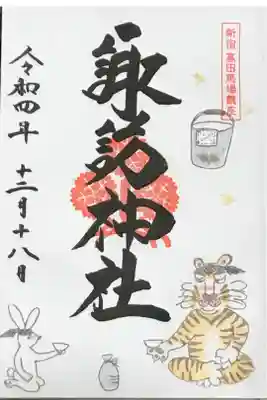 新宿 高田馬場鎮座
諏訪神社
令和四年 十二月十八日